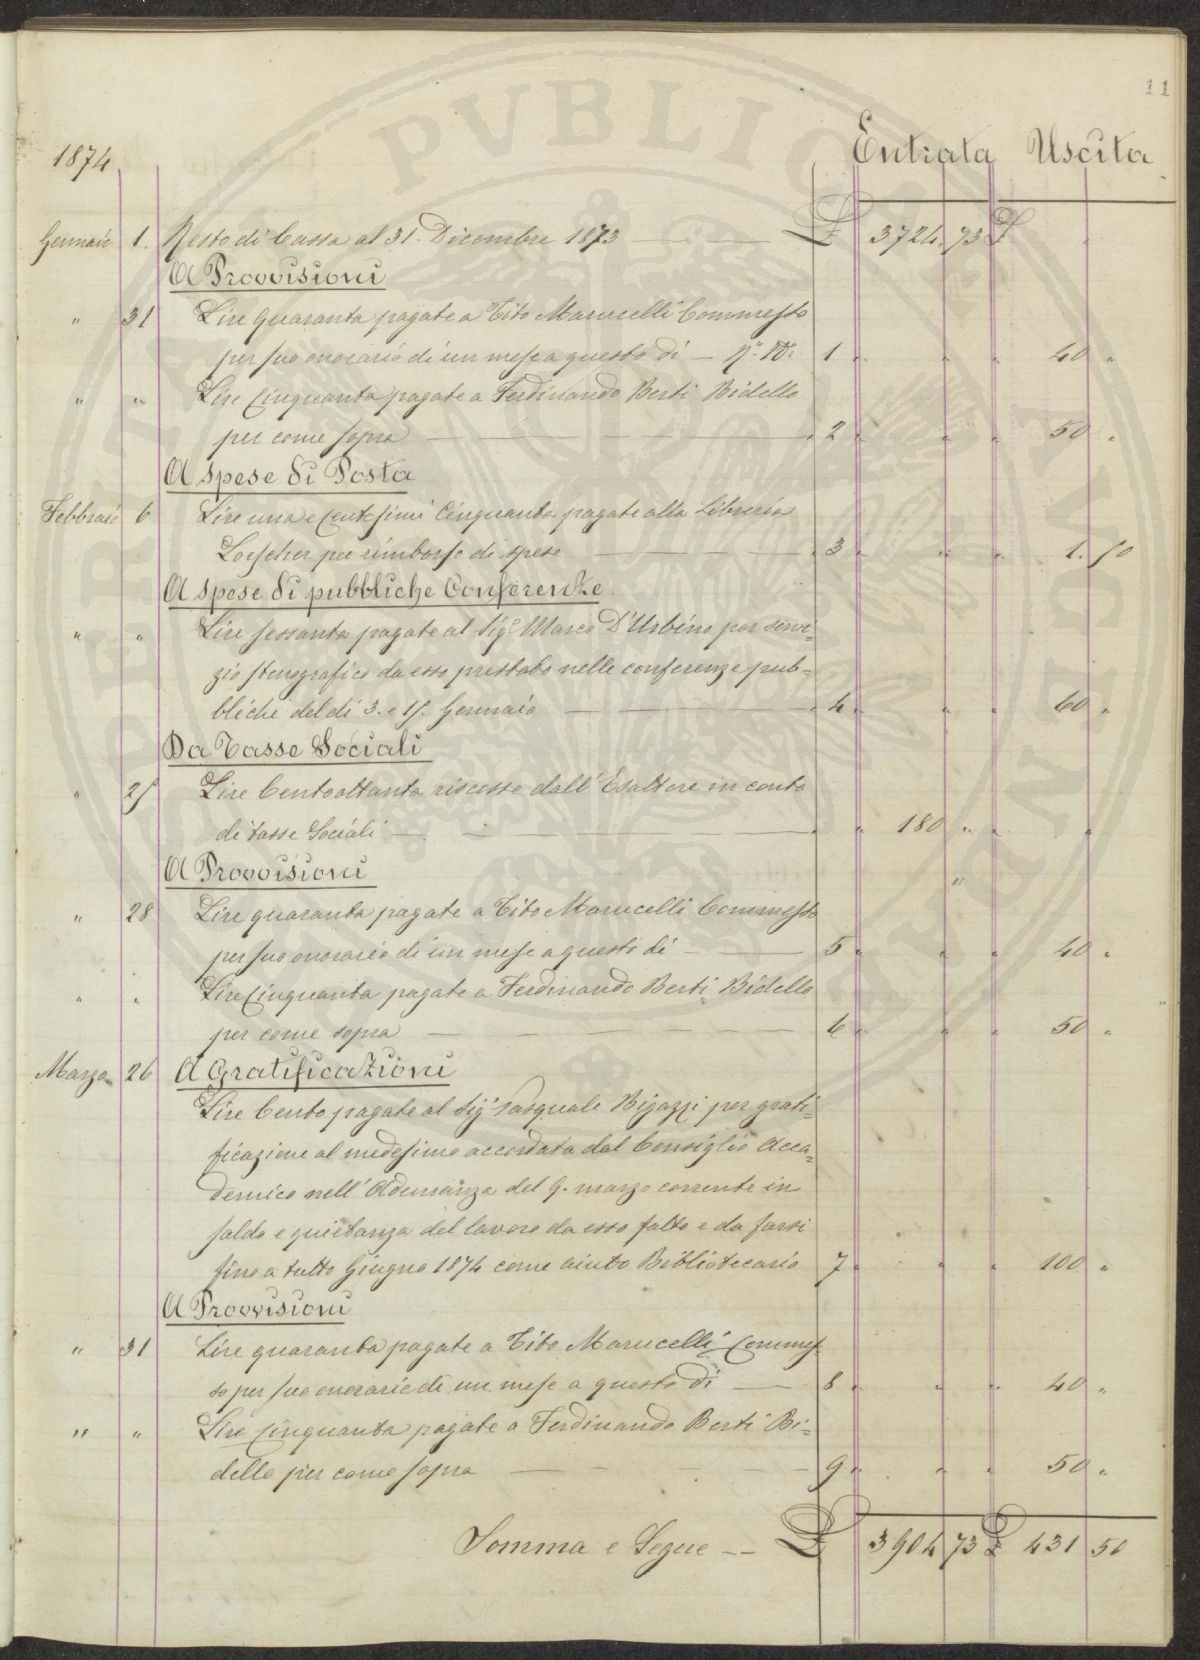 11
1874 Entrata Uscita
Gennaio 1. Resto di Cassa al 31. Dicembre 1873 — — £ 3724 73 £ "
A Provvisioni
" 31 Lire quaranta pagate a Tito Marucelli Commesso
per suo onorario di un mese a questo dì — N.° 1 " " " 40 "
" " Lire Cinquanta pagate a Ferdinando Berti Bidello
per come sopra — " 2 " " " 50 "
A Spese di Posta
Febbraio 6 Lire una e Centesimi Cinquanta pagate alla Libreria
Loescher per rimborso di spese — " 3 " " " 1. 50
A Spese di pubbliche Conferenze
" " Lire sessanta pagate al Sig.r Marco D'Urbino per servi=
zio stenografico da esso prestato nelle conferenze pub=
bliche del dì 3. e 15. Gennaio — " 4 " " " 60 "
Da Tasse Sociali
" 25 Lire Centoottanta riscosse dall'Esattore in conto
di tasse Sociali — " " 180 " " "
A Provvisioni
" 28 Lire quaranta pagate a Tito Marucelli Commesso
per suo onorario di un mese a questo dì — 5 " " " 40 "
" " Lire Cinquanta pagate a Ferdinando Berti Bidello
per come sopra — 6 " " " 50 "
Marzo 26 A Gratificazioni
Lire Cento pagate al Sig.r Pasquale Bigazzi per grati=
ficazione al medesimo accordata dal Consiglio Acca=
demico nell'Adunanza del 9. marzo corrente in
saldo e quietanza del lavoro da esso fatto e da farsi
fino a tutto Giugno 1874 come aiuto Bibliotecario 7 " " " 100 "
A Provvisioni
" 31 Lire quaranta pagate a Tito Marucelli Commes=
so per suo onorario di un mese a questo dì — 8 " " " 40 "
" " Lire Cinquanta pagate a Ferdinando Berti Bi=
dello per come sopra — 9 " " " 50 "
Somma e Segue -- £ 3904 73 £ 431 50